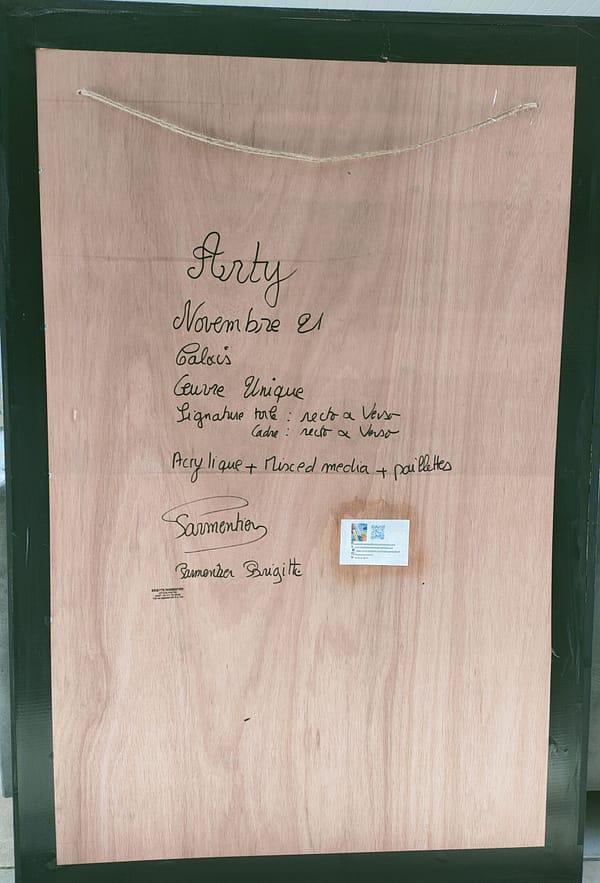 Arty
Novembre 21
Calais
Œuvre Unique
Signature toile : recto & Verso
Cadre : recto & Verso
Acrylique + Mixed media + paillettes
Sarmentier
Sarmentier Brigitte